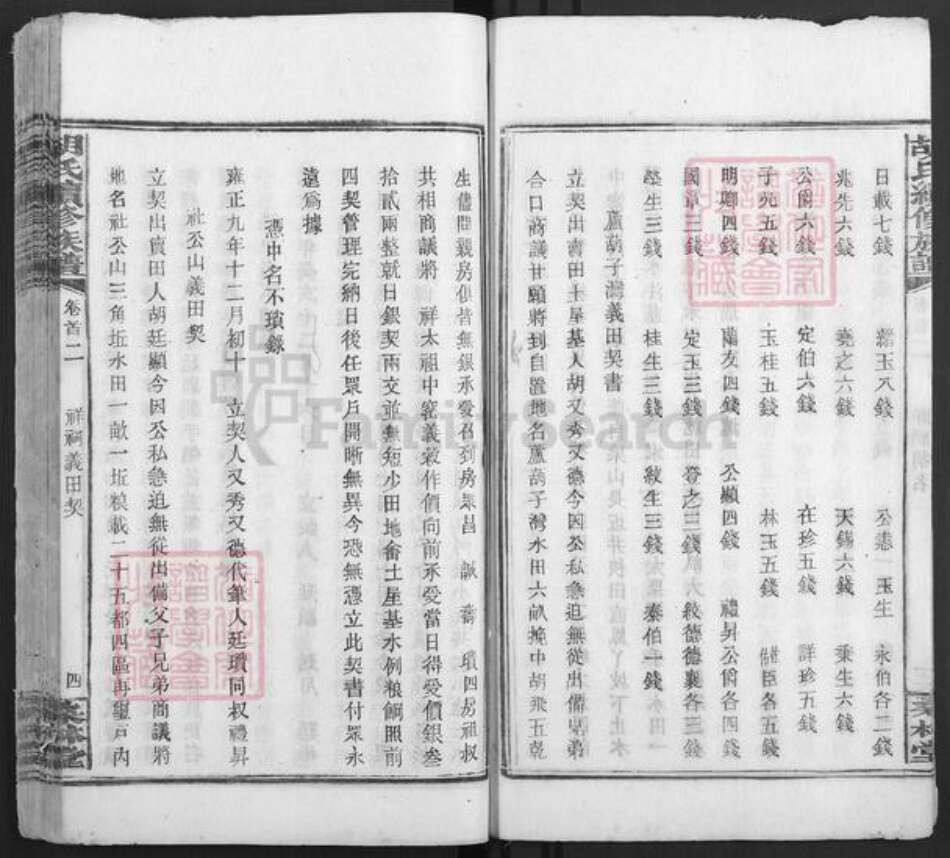 日載七錢 紹玉八錢 公憲 玉生 永伯各二錢
兆先六錢 堯之六錢 天錫六錢 秉生六錢
公爵六錢 定伯六錢 在珍五錢 詳珍五錢
子先五錢 玉桂五錢 林玉五錢 儲臣各五錢
明卿四錢 蘭友四錢 公顯四錢 禮昇公爵各四錢
國章三錢 定玉三錢 登之三錢 大敘德德襄各三錢
學生三錢 桂生三錢 紋生三錢 泰伯一錢
蘆葫子灣義田契書
立契出賣田土屋基人胡又秀又德今因公私急迫無從出備兄弟
合口商議甘願將到自置地名蘆葫子灣水田六畝挽中胡飛五乾
生儘問親房俱皆無銀承愛召到房眾昌 誠 壽 瓆四房祖叔
共相商議將 祥太祖中蜜義穀作價向前承受當日得受價銀叁
拾貳兩整就日銀契兩交並無短少田地畲土屋基水例粮餉照前
四契管理完納日後任眾戶開晰無異今恐無憑立此契書付眾永
遠為據
憑中名不瑣錄
雍正九年十二月初十 立契人又秀又德代筆人廷瓆同叔禮昇
社公山義田契
立契出賣田人胡廷顯今因公私急迫無從出備父子兄弟商議將
地名社公山三角坵水田一畝一坵粮載二十五都四區再璽戶內
胡氏續修族譜 卷首二 祥祠義田契 四
胡氏續修族譜
FamilySearch